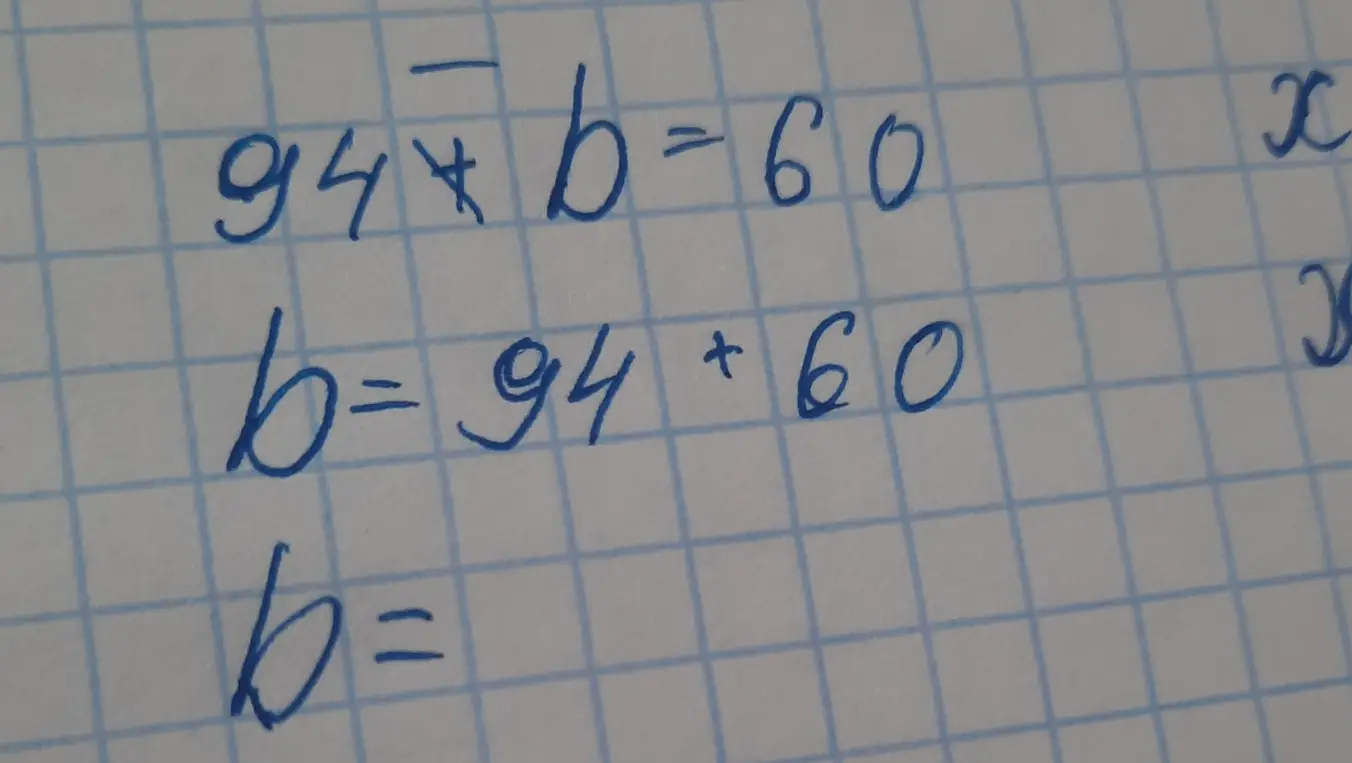 94 - b = 60
b = 94 + 60
b =
x